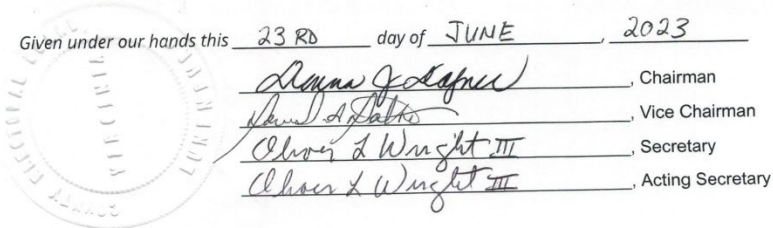 Given under our hands this 23 RD day of JUNE, 2023
Donna J Hafner, Chairman
David A Satko, Vice Chairman
Oliver L Wright III, Secretary
Oliver L Wright III, Acting Secretary
COUNTY ELECTORAL BOARD
VIRGINIA